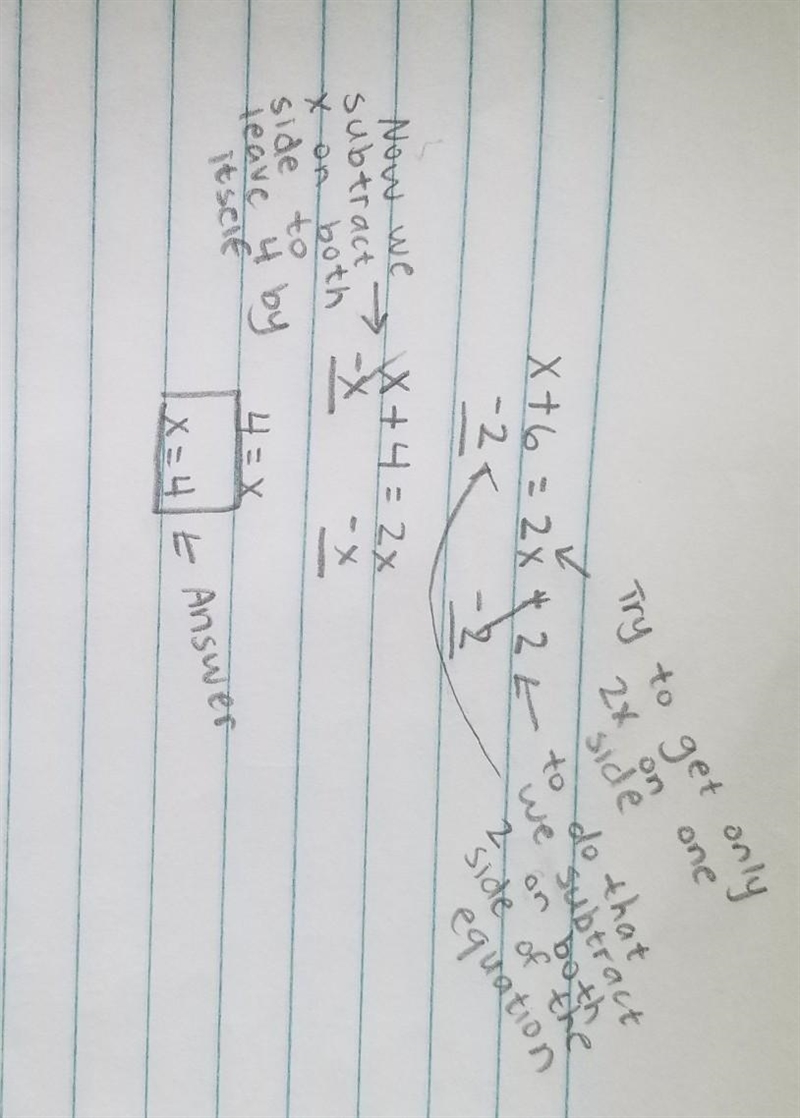 Try to get only
2x on one
side
x + 6 = 2x + 2 ← to do that
we subtract
2 on both
side of the
equation
-2 -2
Now we
subtract →
x on both
side to
leave 4 by
itself
x + 4 = 2x
-x -x
4 = x
x = 4 ← Answer